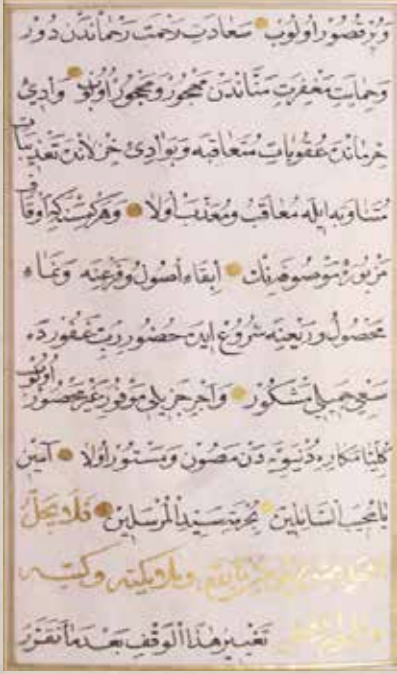 وپرقصور اولوب سعادت رحمت رحماندن دور
وحمایت مغفرت مناندن مهجور ومحجور اولوب وادئ
حرماندن عقوبات متعاقبه وبوادئ خزلاندن تعذیبات
متناوبه ایله معاقب ومعذب اولا وهر كمسنه كه اوقاف
مزبوره موصوفه نك ابقاء اصول وفرعنه ونماء
محصول وریعنه شروع ایده حضور رب غفورده
سعی جمیلی مشكور واجر جزیلی موفور غیر محصور اولوب
كلیا مكاره دنیویه دن مصون ومستور اولا آمین
یا مجیب السائلین بحرمة سید المرسلین فلا یحل
لاحد یؤمن بالله وملائكته وكتبه
تغییر هذا الوقف بعد ما تقرر